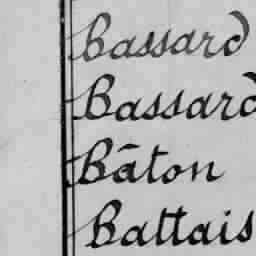 Bassard
Bassard
Bâton
Battais